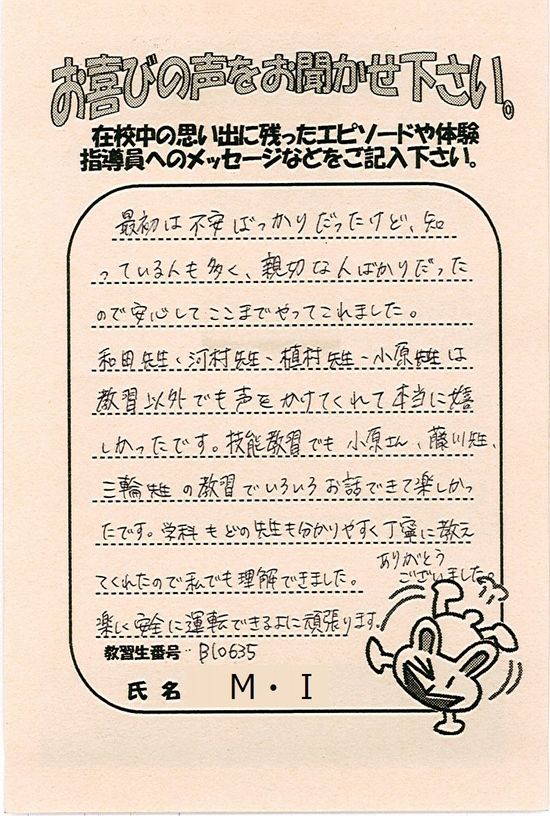 お喜びの声をお聞かせ下さい。
在校中の思い出に残ったエピソードや体験
指導員へのメッセージなどをご記入下さい。
最初は不安ばっかりだったけど、知
っている人も多く、親切な人ばかりだった
ので安心してここまでやってこれました。
和田先生、河村先生、植村先生、小原先生は
教習以外でも声をかけてくれて本当に嬉
しかったです。技能教習でも小原さん、藤川先生、
三輪先生の教習でいろいろお話できて楽しかっ
たです。学科もどの先生も分かりやすく丁寧に教え
てくれたので私でも理解できました。
ありがとう
ございました。
楽しく安全に運転できるように頑張ります。
教習生番号 B10635
氏名 M・I